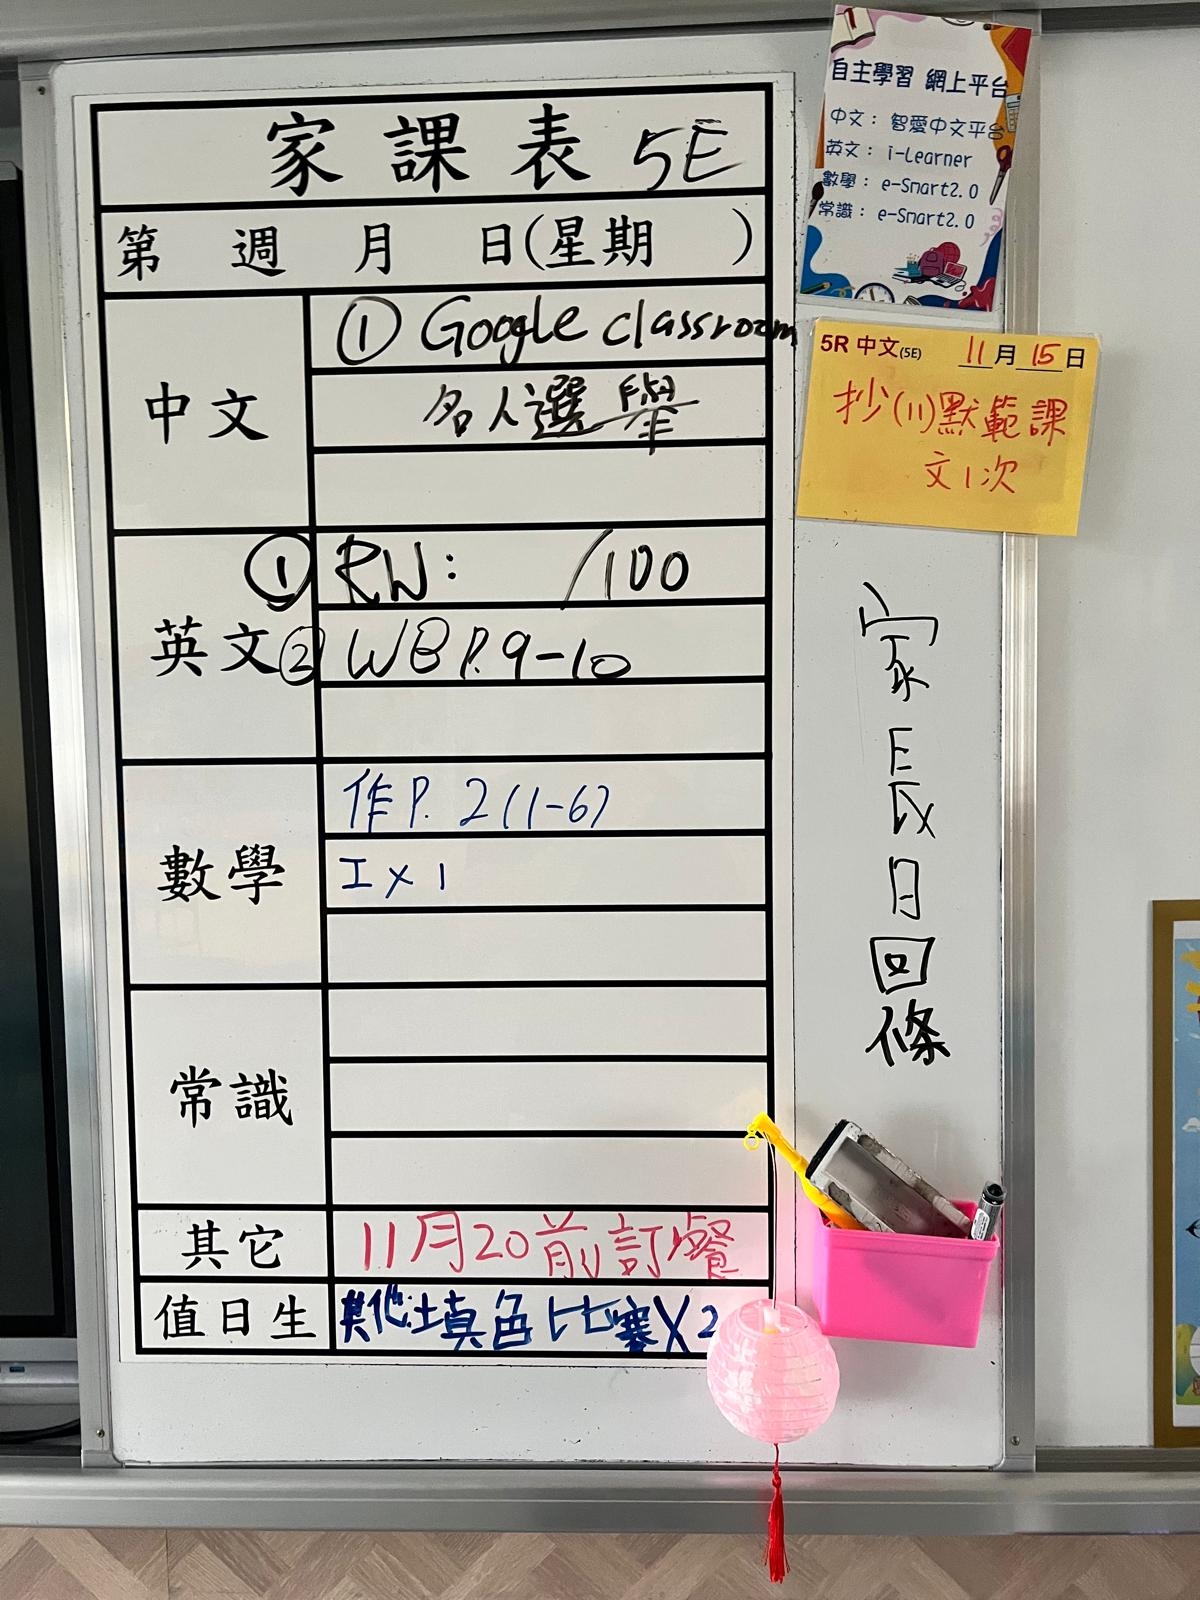 家課表 5E
第 週 月 日(星期 )
中文
① Google classroom
名人選舉
英文
① RW: /100
② WB P.9-10
數學
作P. 2(1-6)
工×1
常識
其它
11月20前訂餐
值日生
其他:填色比賽X2
自主學習 網上平台
中文： 智愛中文平台
英文： i-Learner
數學： e-Smart2.0
常識： e-Smart2.0
5R 中文(5E) 11月15日
抄(11)默範課
文1次
家長日回條